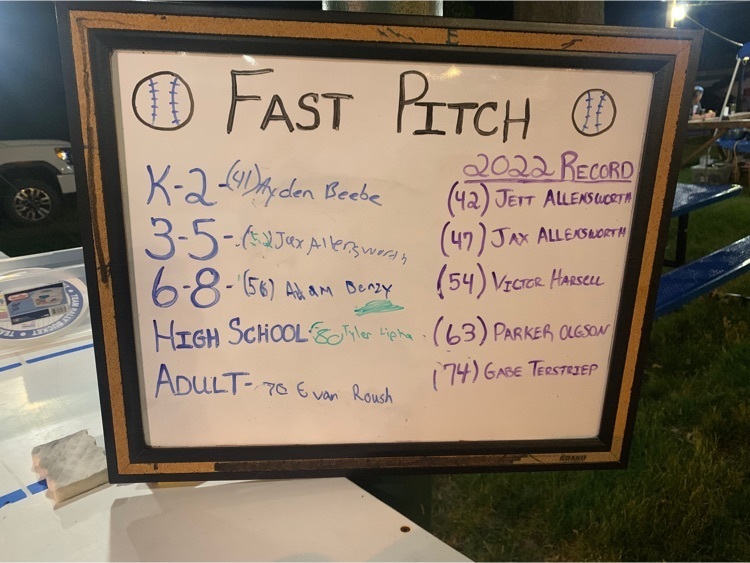 FAST PITCH
K-2 - (41) Ayden Beebe
3-5 - (52) Jax Allensworth
6-8 - (56) Adam Benzy
HIGH SCHOOL - 80 Tyler
ADULT - 70 Evan Roush
2022 RECORD
(42) JETT ALLENSWORTH
(47) JAX ALLENSWORTH
(54) VICTOR HARSELL
(63) PARKER OLGSON
(74) GABE TERSTRIEP